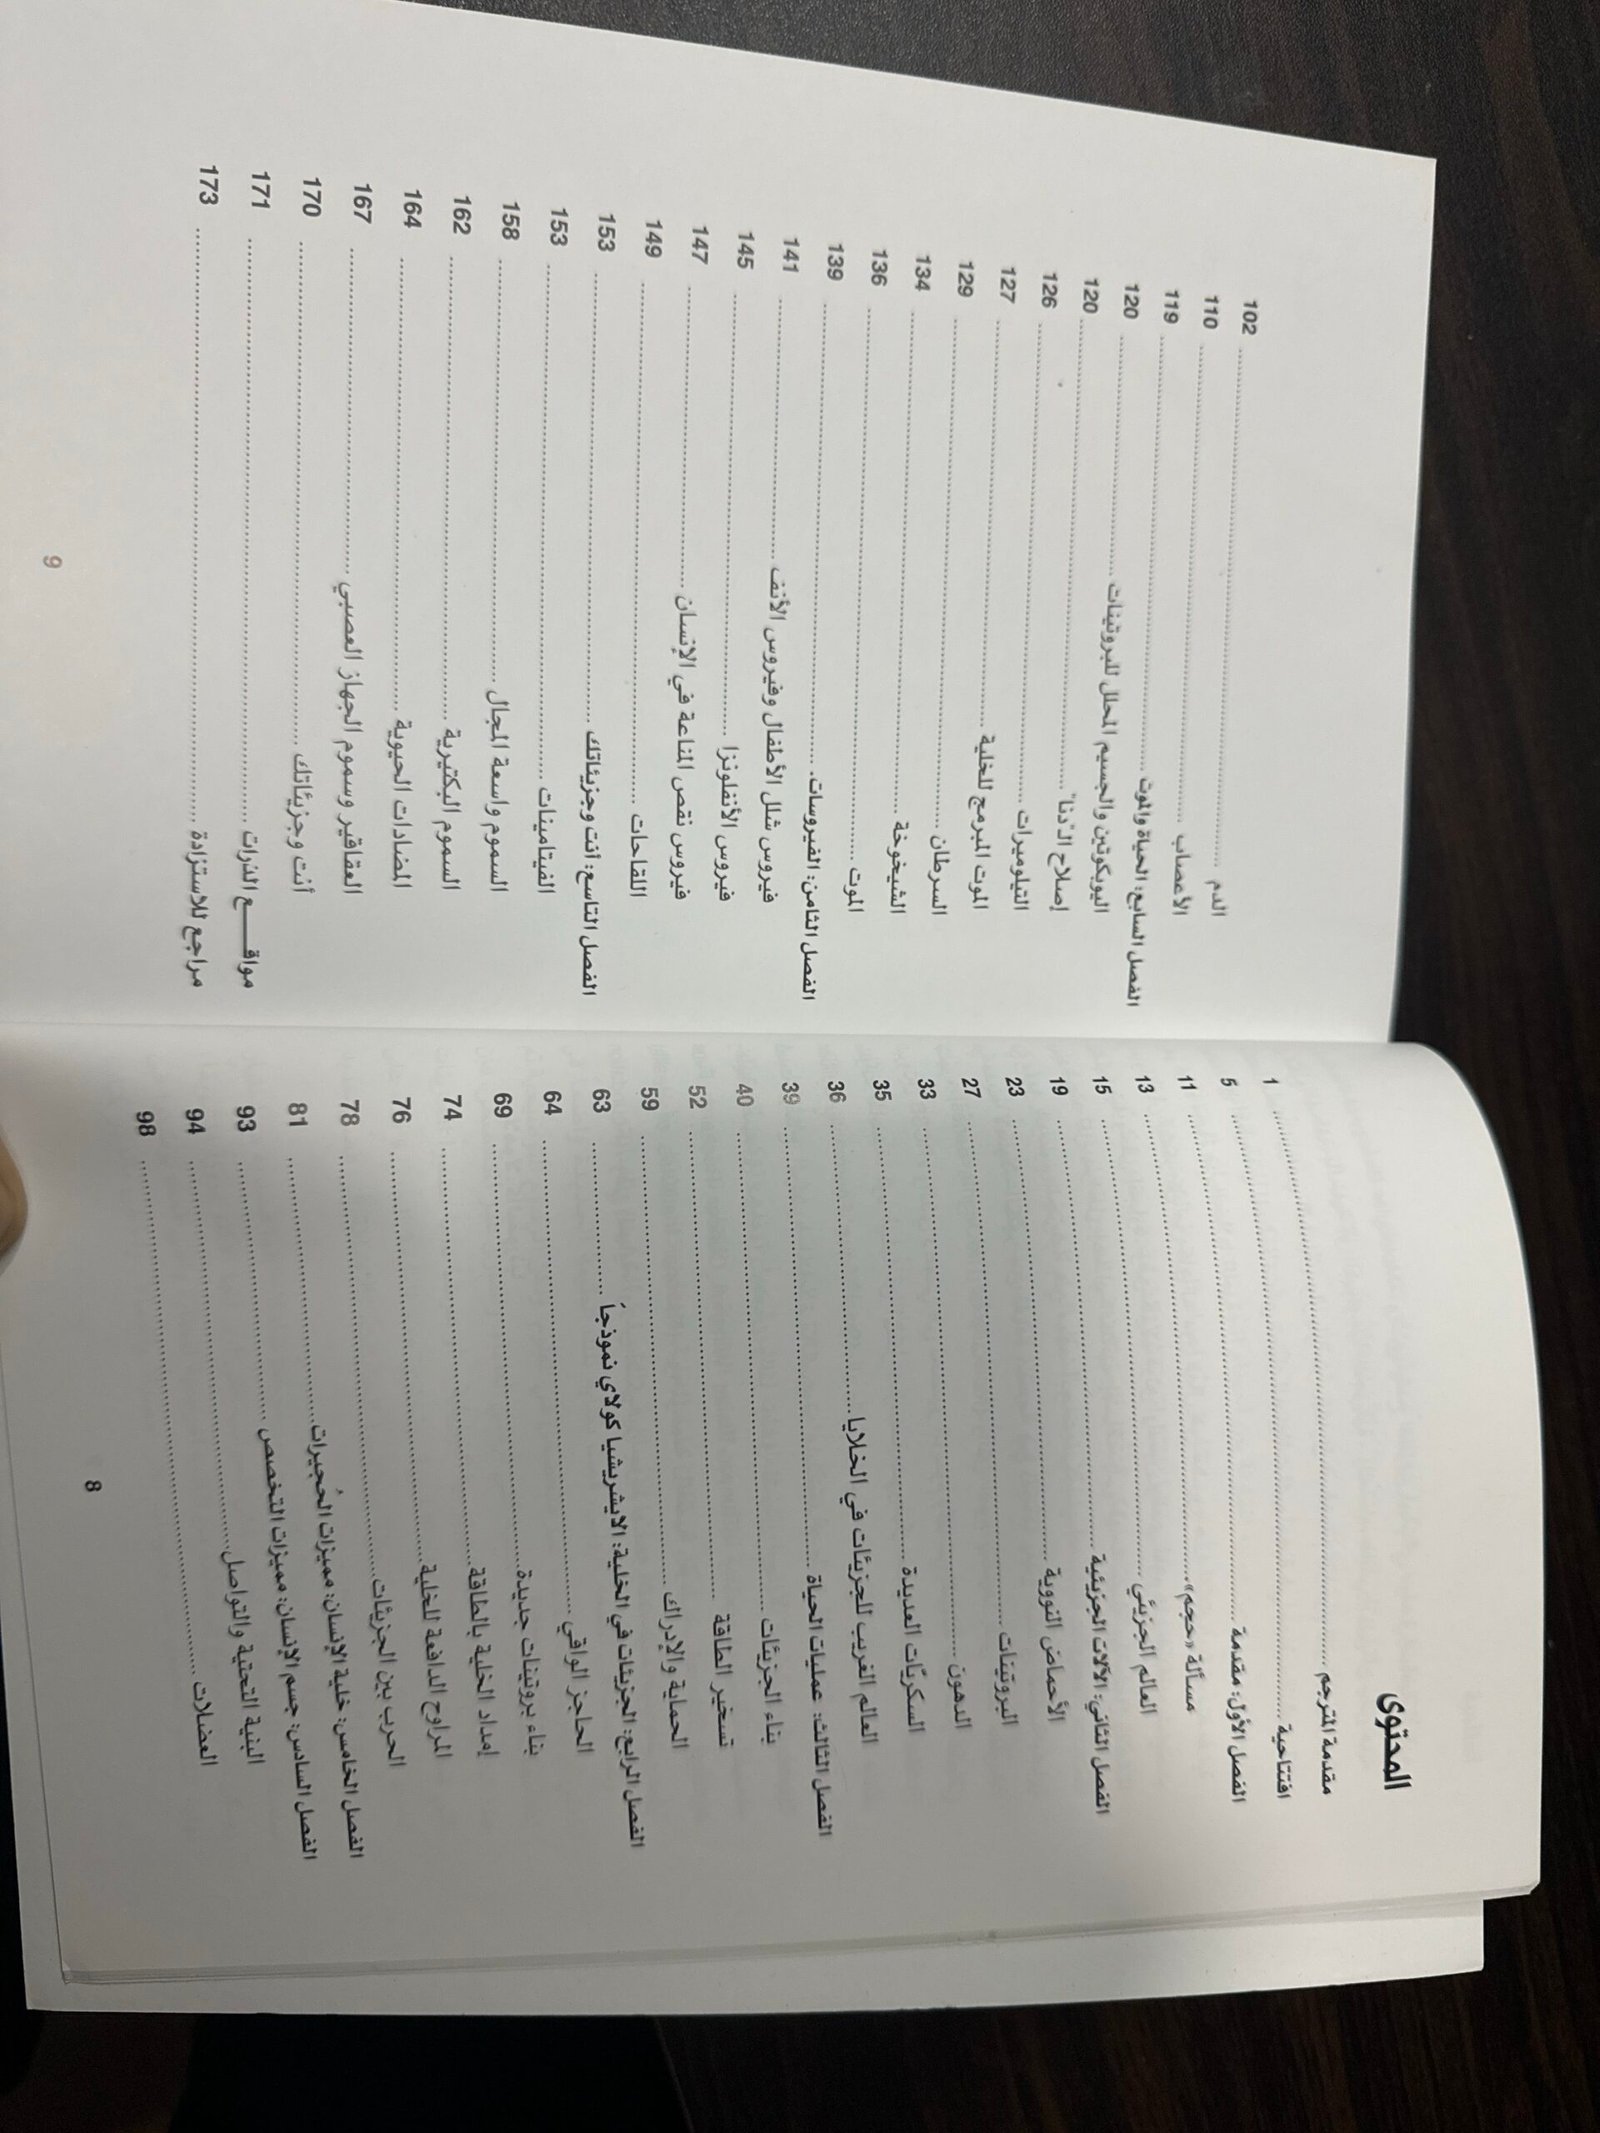 المحتوى
مقدمة المترجم ........ 1
افتتاحية ........ 5
الفصل الأول: مقدمة ........ 11
مسألة «حجم» ........ 13
العالم الجزيئي ........ 15
الفصل الثاني: الآلات الجزيئية ........ 19
الأحماض النووية ........ 23
البروتينات ........ 27
الدهون ........ 33
السكريّات العديدة ........ 35
العالم الغريب للجزيئات في الخلايا ........ 36
الفصل الثالث: عمليات الحياة ........ 39
بناء الجزيئات ........ 40
تسخير الطاقة ........ 52
الحماية والإدراك ........ 59
الفصل الرابع: الجزيئات في الخلية: الايشريشيا كولاي نموذجاً ........ 63
الحاجز الواقي ........ 64
بناء بروتينات جديدة ........ 69
إمداد الخلية بالطاقة ........ 74
المراوح الدافعة للخلية ........ 76
الحرب بين الجزيئات ........ 78
الفصل الخامس: خلية الإنسان: مميزات الحُجيرات ........ 81
الفصل السادس: جسم الإنسان: مميزات التخصص ........ 93
البنية التحتية والتواصل ........ 94
العضلات ........ 98
8
الدم ........ 102
الأعصاب ........ 110
الفصل السابع: الحياة والموت ........ 119
اليوبكوتين والجسيم المحلل للبروتينات ........ 120
إصلاح الـ"دنا" ........ 120
التيلوميرات ........ 126
الموت المبرمج للخلية ........ 127
السرطان ........ 129
الشيخوخة ........ 134
الموت ........ 136
الفصل الثامن: الفيروسات ........ 139
فيروس شلل الأطفال وفيروس الأنف ........ 141
فيروس الأنفلونزا ........ 145
فيروس نقص المناعة في الإنسان ........ 147
اللقاحات ........ 149
الفصل التاسع: أنت وجزيئاتك ........ 153
الفيتامينات ........ 153
السموم واسعة المجال ........ 158
السموم البكتيرية ........ 162
المضادات الحيوية ........ 164
العقاقير وسموم الجهاز العصبي ........ 167
أنت وجزيئاتك ........ 170
مواقـــــع الذرات ........ 171
مراجع للاستزادة ........ 173
9